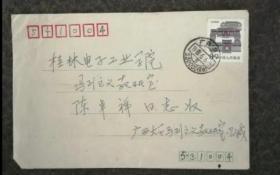 541004
桂林电子工业学院
马列主义教研室
陈 祥同志收
广西大学马列主义教研室
531004